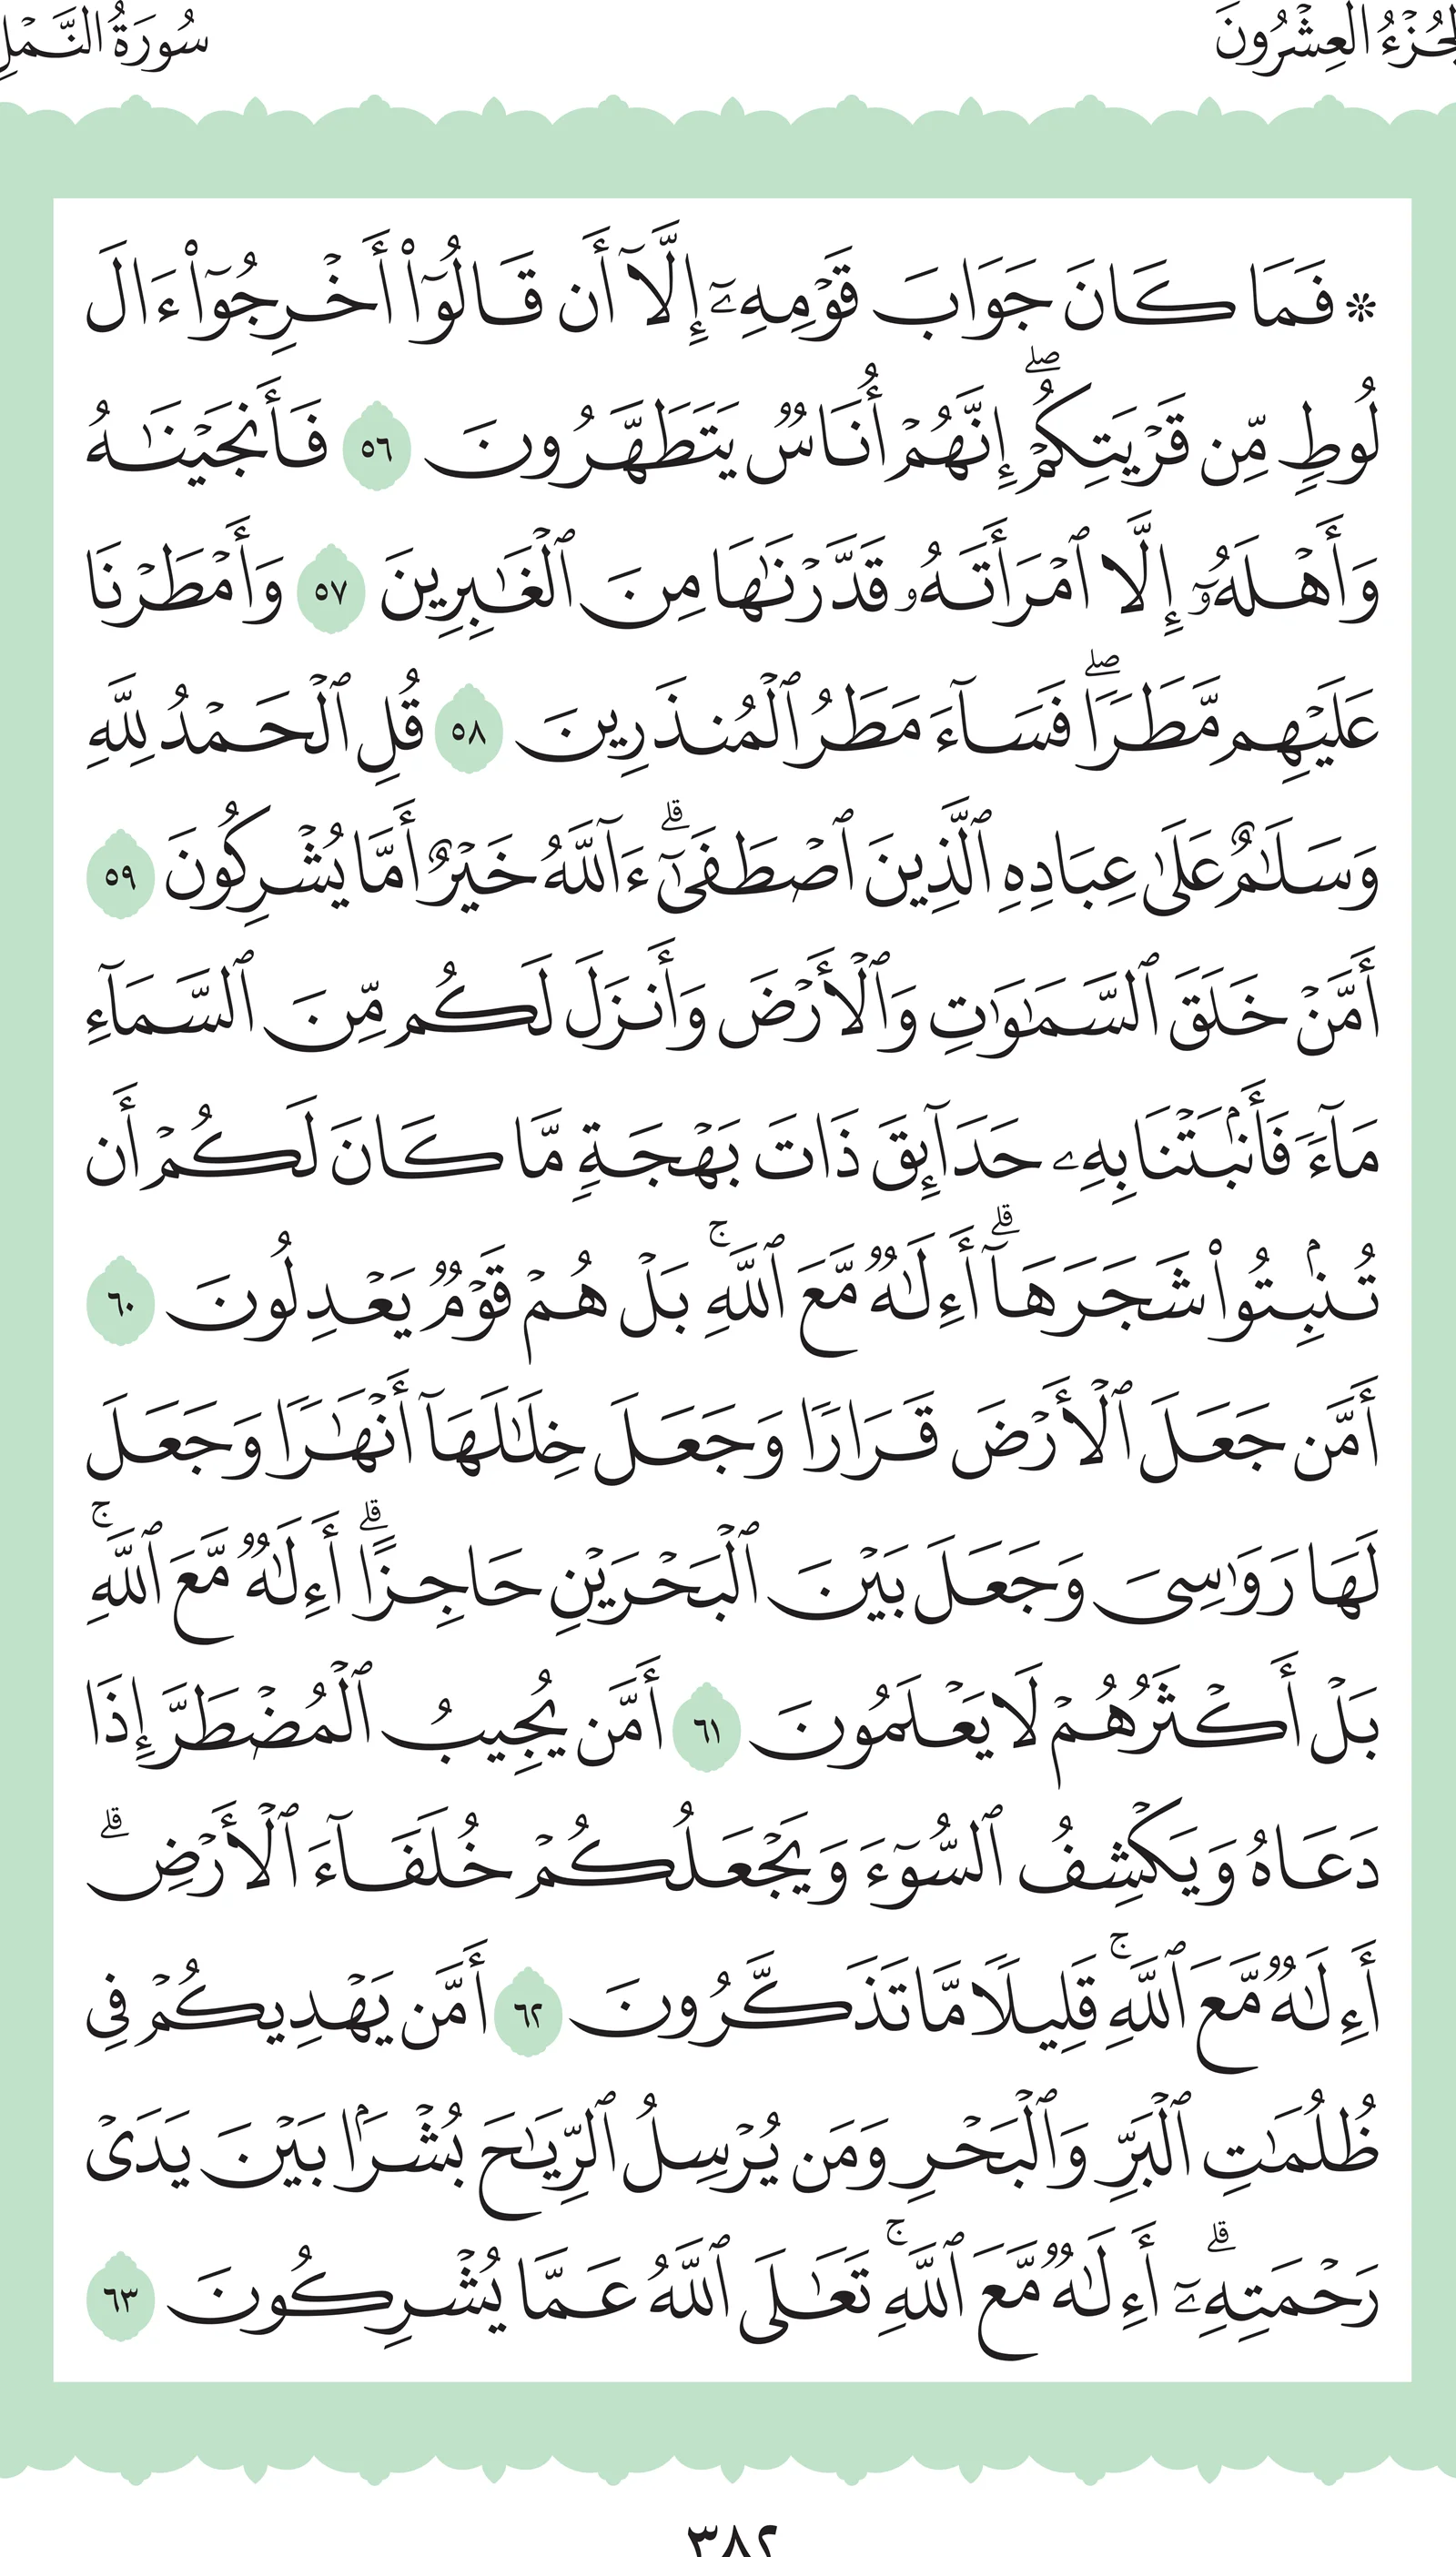 الجُزْءُ العِشْرُونَ سُورَةُ النَّمْلِ
* فَمَا كَانَ جَوَابَ قَوْمِهِۦٓ إِلَّآ أَن قَالُوٓا۟ أَخْرِجُوٓا۟ ءَالَ
لُوطٍ مِّن قَرْيَتِكُمْ ۖ إِنَّهُمْ أُنَاسٌ يَتَطَهَّرُونَ ٥٦ فَأَنجَيْنَـٰهُ
وَأَهْلَهُۥٓ إِلَّا ٱمْرَأَتَهُۥ قَدَّرْنَـٰهَا مِنَ ٱلْغَـٰبِرِينَ ٥٧ وَأَمْطَرْنَا
عَلَيْهِم مَّطَرًا ۖ فَسَآءَ مَطَرُ ٱلْمُنذَرِينَ ٥٨ قُلِ ٱلْحَمْدُ لِلَّهِ
وَسَلَـٰمٌ عَلَىٰ عِبَادِهِ ٱلَّذِينَ ٱصْطَفَىٰٓ ۗ ءَآللَّهُ خَيْرٌ أَمَّا يُشْرِكُونَ ٥٩
أَمَّنْ خَلَقَ ٱلسَّمَـٰوَٰتِ وَٱلْأَرْضَ وَأَنزَلَ لَكُم مِّنَ ٱلسَّمَآءِ
مَآءً فَأَنۢبَتْنَا بِهِۦ حَدَآئِقَ ذَاتَ بَهْجَةٍ مَّا كَانَ لَكُمْ أَن
تُنۢبِتُوا۟ شَجَرَهَآ ۗ أَءِلَـٰهٌ مَّعَ ٱللَّهِ ۚ بَلْ هُمْ قَوْمٌ يَعْدِلُونَ ٦٠
أَمَّن جَعَلَ ٱلْأَرْضَ قَرَارًا وَجَعَلَ خِلَـٰلَهَآ أَنْهَـٰرًا وَجَعَلَ
لَهَا رَوَٰسِىَ وَجَعَلَ بَيْنَ ٱلْبَحْرَيْنِ حَاجِزًا ۗ أَءِلَـٰهٌ مَّعَ ٱللَّهِ ۚ
بَلْ أَكْثَرُهُمْ لَا يَعْلَمُونَ ٦١ أَمَّن يُجِيبُ ٱلْمُضْطَرَّ إِذَا
دَعَاهُ وَيَكْشِفُ ٱلسُّوٓءَ وَيَجْعَلُكُمْ خُلَفَآءَ ٱلْأَرْضِ ۗ
أَءِلَـٰهٌ مَّعَ ٱللَّهِ ۚ قَلِيلًا مَّا تَذَكَّرُونَ ٦٢ أَمَّن يَهْدِيكُمْ فِى
ظُلُمَـٰتِ ٱلْبَرِّ وَٱلْبَحْرِ وَمَن يُرْسِلُ ٱلرِّيَـٰحَ بُشْرًۢا بَيْنَ يَدَىْ
رَحْمَتِهِۦٓ ۗ أَءِلَـٰهٌ مَّعَ ٱللَّهِ ۚ تَعَـٰلَى ٱللَّهُ عَمَّا يُشْرِكُونَ ٦٣
٣٨٢